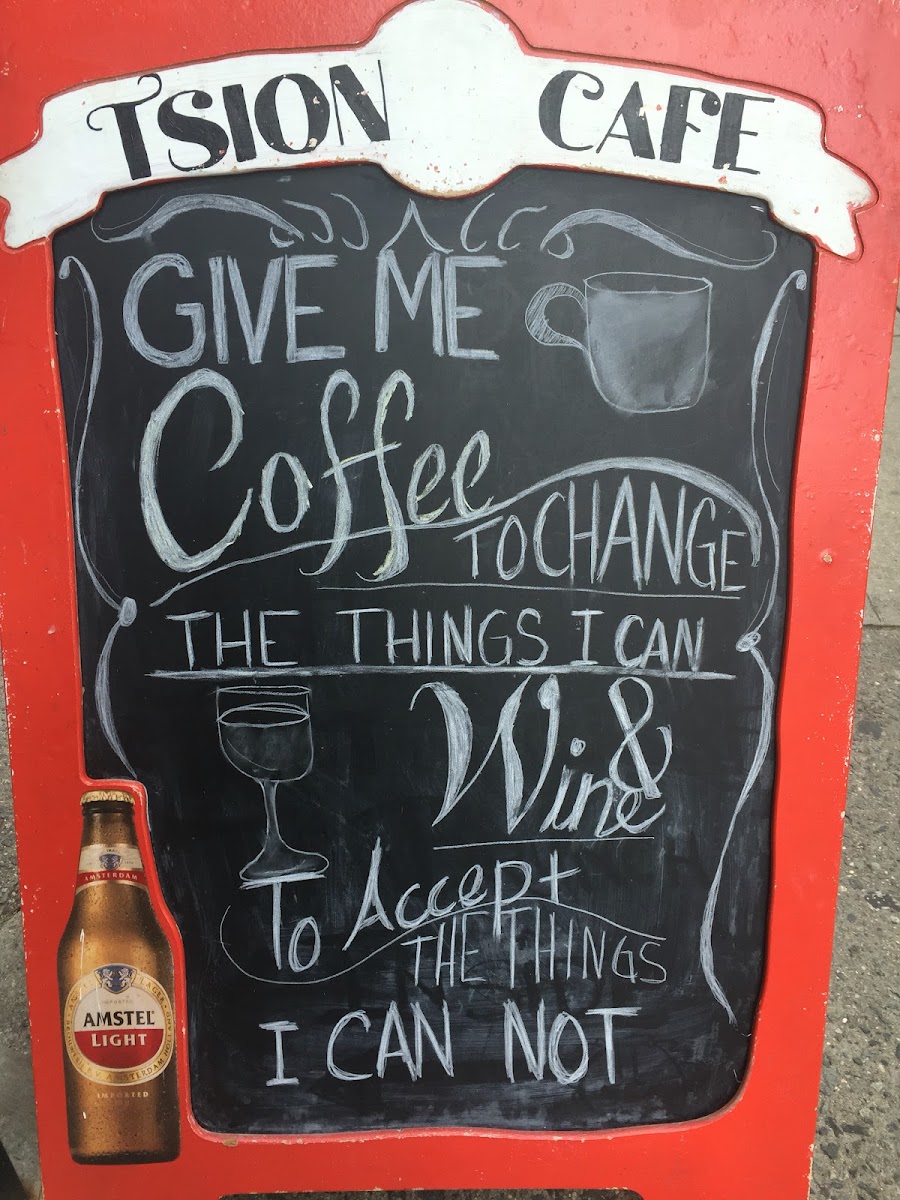 TSION CAFE
GIVE ME
Coffee
TO CHANGE
THE THINGS I CAN
& Wine
To Accept
THE THINGS
I CAN NOT
AMSTERDAM
IMPORTED
AMSTEL
LIGHT
IMPORTED